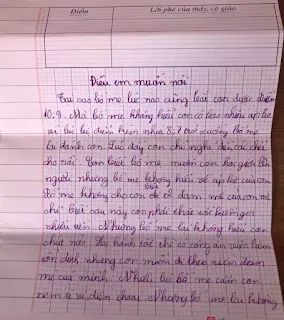 Điểm Lời phê của thầy, cô giáo
Điều em muốn nói
Tại sao bố mẹ lúc nào cũng bắt con được điểm
10, 9. Mà bố mẹ không hiểu con có bao nhiêu áp lực
với lúc bị điểm kém như 5, 7 thì bố mẹ
lại đánh con. Lúc đấy con chỉ nghĩ đến cái chết
cho rồi. Con biết bố mẹ muốn con học giỏi lên
người nhưng bố mẹ không hiểu về áp lực của con.
Bố mẹ không cho con đi theo đam mê của con mà
chỉ biết sau này con phải thế với kiếm
nhiều tiền. Nhưng bố mẹ lại không hiểu con
chút nào. Học hành tốt thì có công ăn việc làm
ổn định nhưng con muốn đi theo niềm đam
mê của mình. Nhiều lúc bố mẹ cấm con
xem ti vi điện thoại. Nhưng bố mẹ lại không